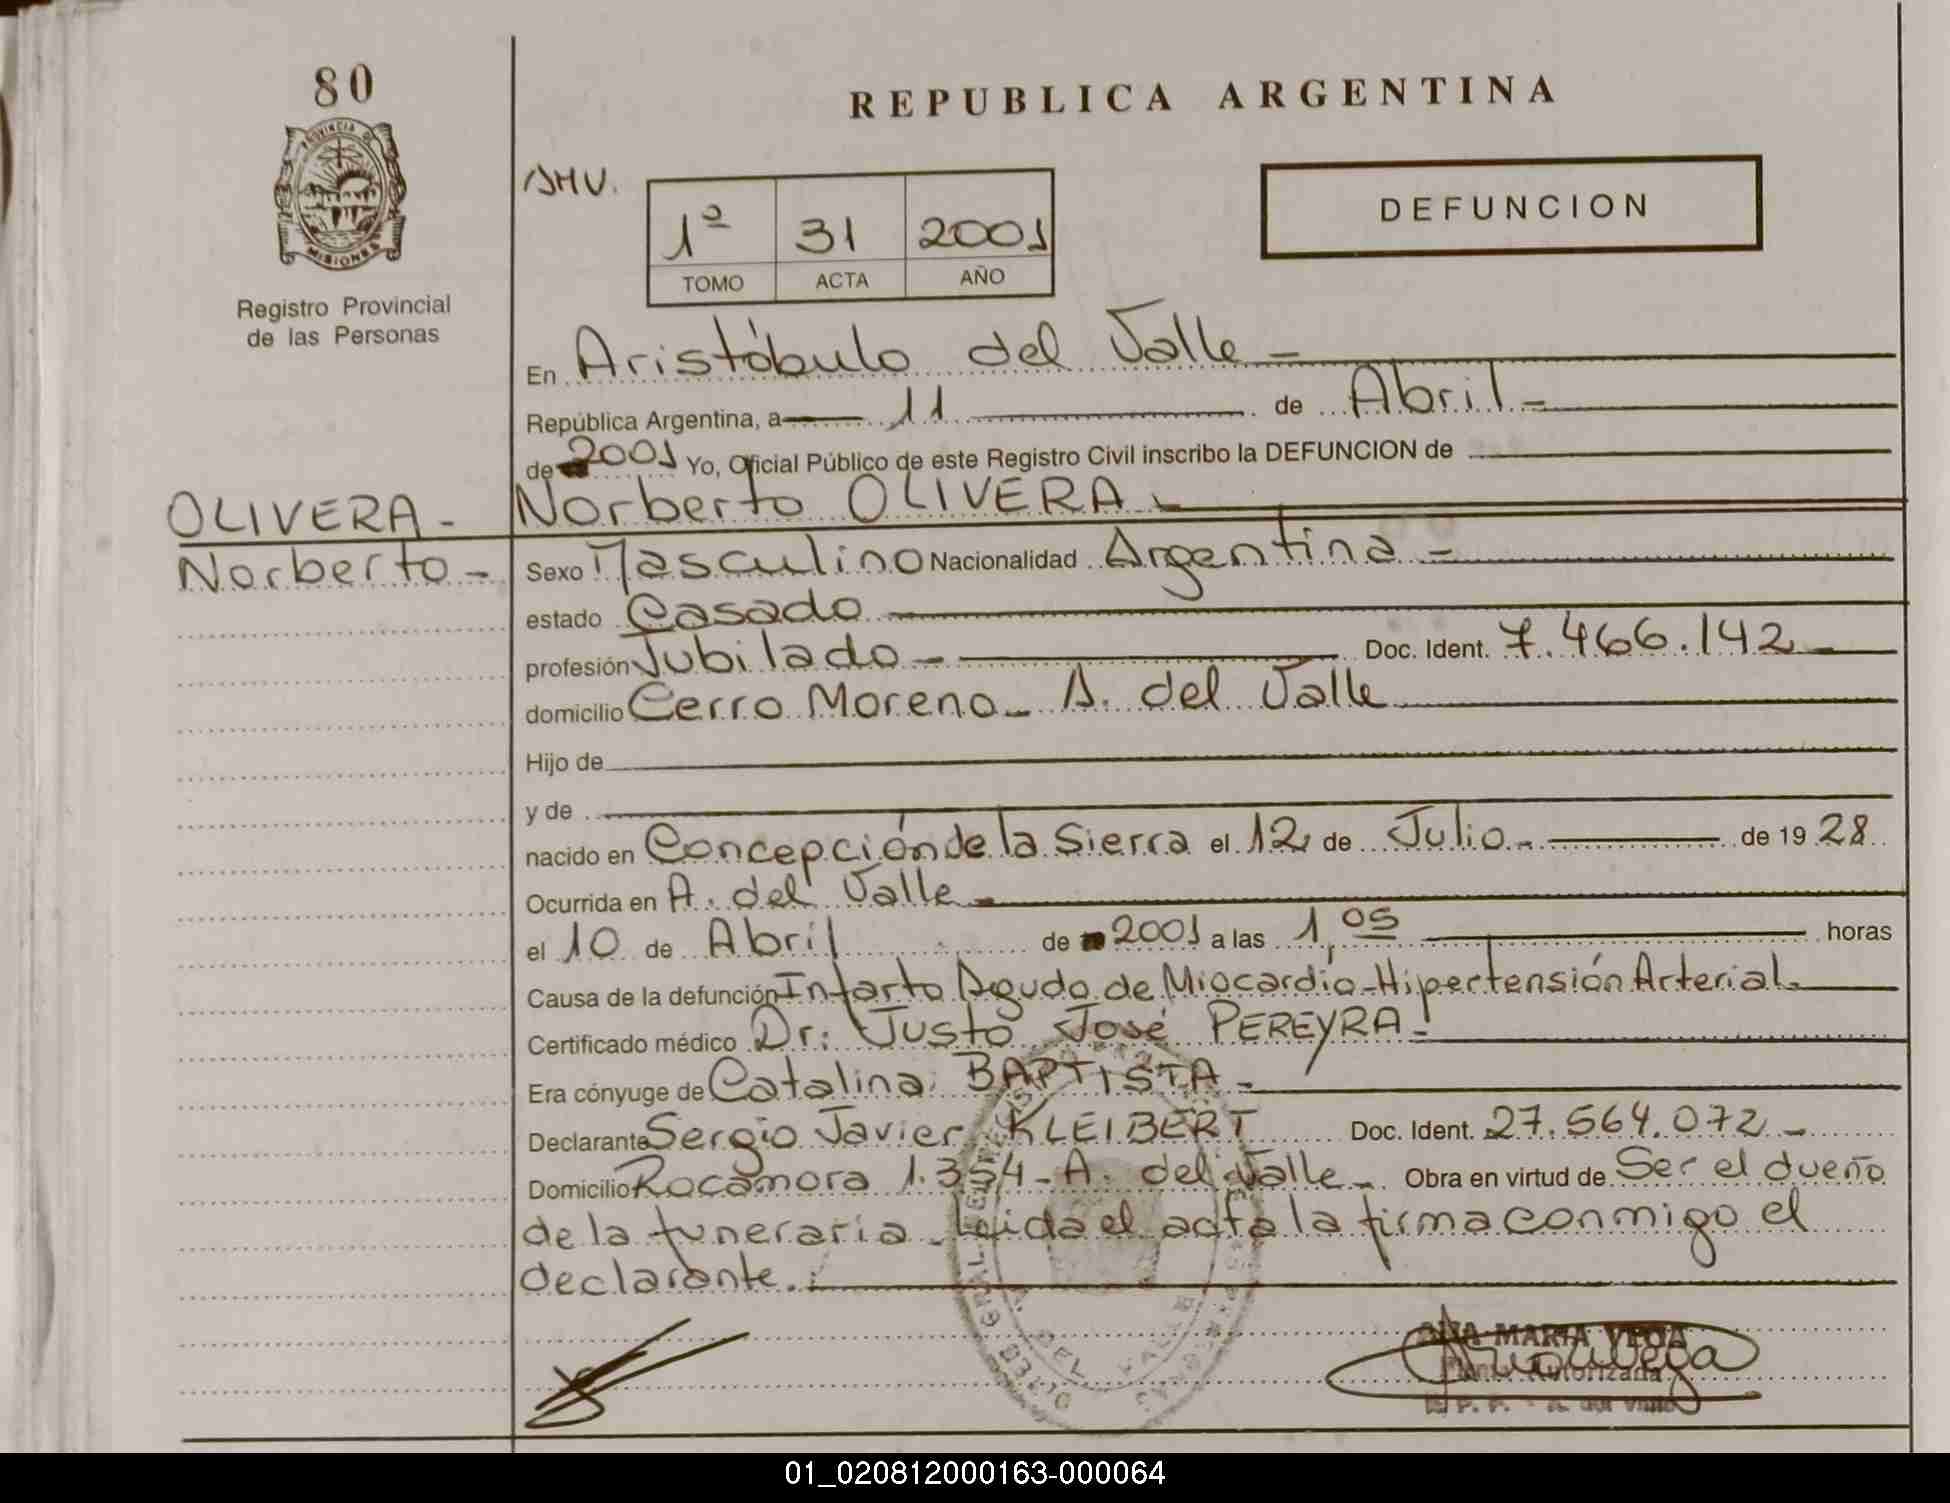 80
REPUBLICA ARGENTINA
PROVINCIA DE
MISIONES
Registro Provincial
de las Personas
AMV.
1º 31 2001
TOMO ACTA AÑO
DEFUNCION
En Aristóbulo del Valle -
República Argentina, a 11 de Abril -
de 2001 Yo, Oficial Público de este Registro Civil inscribo la DEFUNCION de
OLIVERA - Norberto OLIVERA -
Norberto - Sexo Masculino Nacionalidad Argentina -
estado Casado
profesión Jubilado - Doc. Ident. 7.466.142 -
domicilio Cerro Moreno - A. del Valle
Hijo de
y de
nacido en Concepción de la Sierra el 12 de Julio - de 19 28
Ocurrida en A. del Valle -
el 10 de Abril de 2001 a las 1,05 horas
Causa de la defunción Infarto Agudo de Miocardio - Hipertensión Arterial.
Certificado médico Dr: Justo José PEREYRA -
Era cónyuge de Catalina BAPTISTA -
Declarante Sergio Javier KLEIBERT Doc. Ident. 27.564.072 -
Domicilio Rocamora 1.354 - A. del Valle - Obra en virtud de Ser el dueño
de la funeraria - Leida el acta la firma conmigo el
declarante.
ANA MARIA VEGA
Firma Autorizada
R. P. P. - A. del Valle
01_020812000163-000064